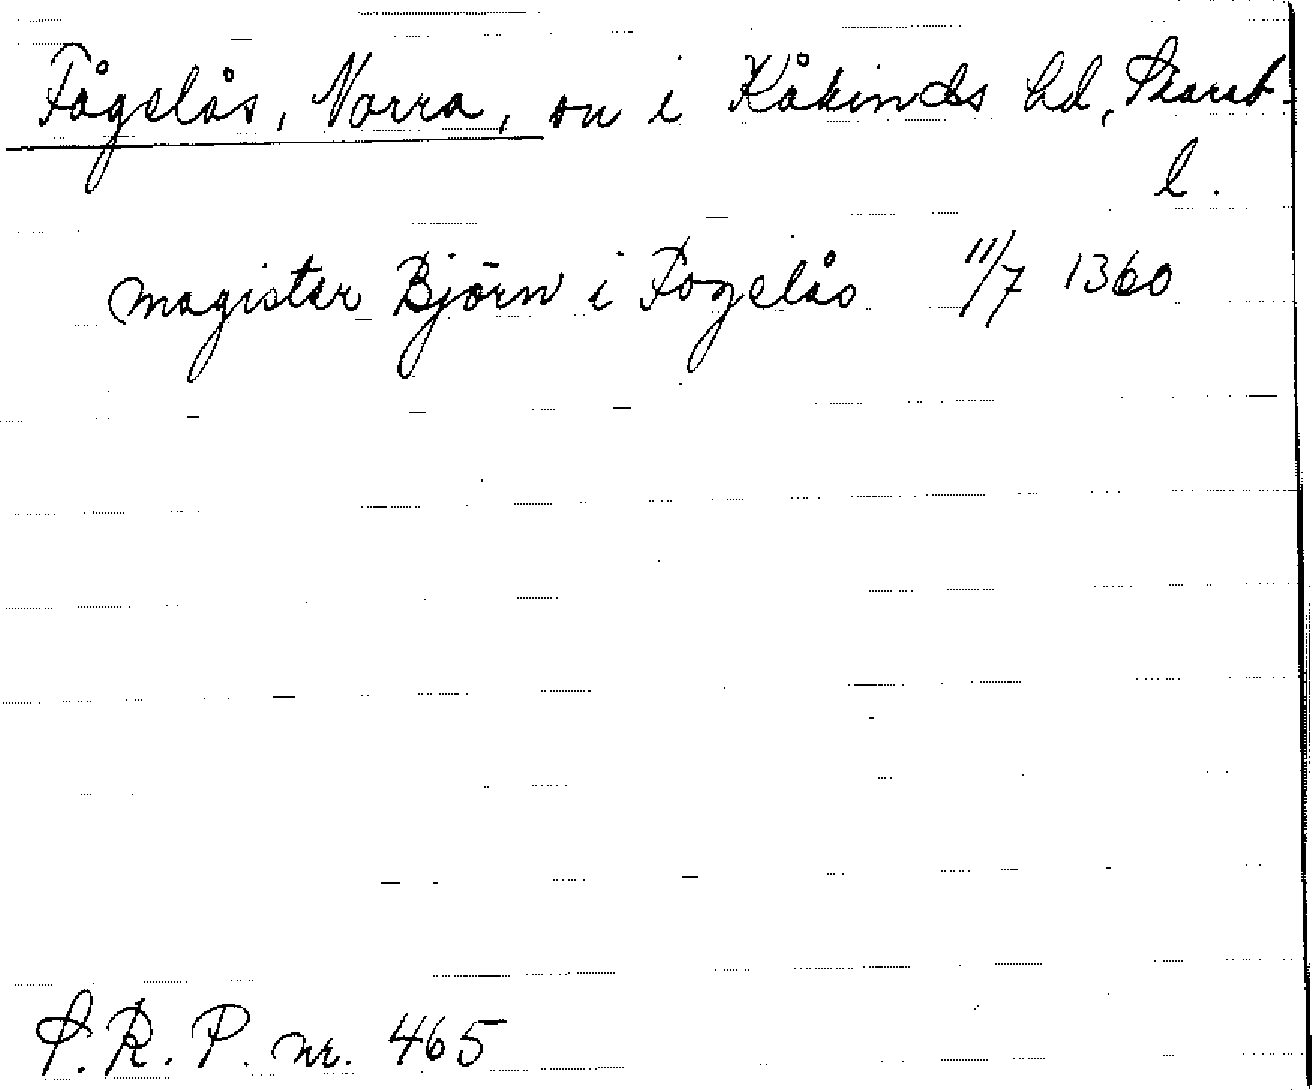 Fågelås, Norra, sn i Kåkinds hd, Skarab.
l.
magister Björn i Fogelås 11/7 1360
S.R.P. nr. 465